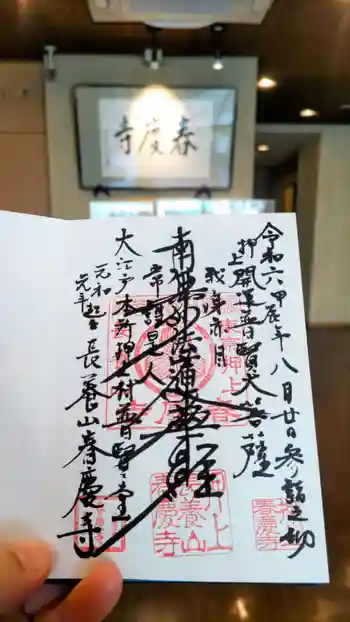 春慶寺
令和六甲辰年八月廿日参詣之砌
押上開運普賢大菩薩
我浄亦同
南無妙法蓮華経
常護是人
大江戸本所押上村普賢堂
元和元年起立
長養山春慶寺
押上
長養山
春慶寺